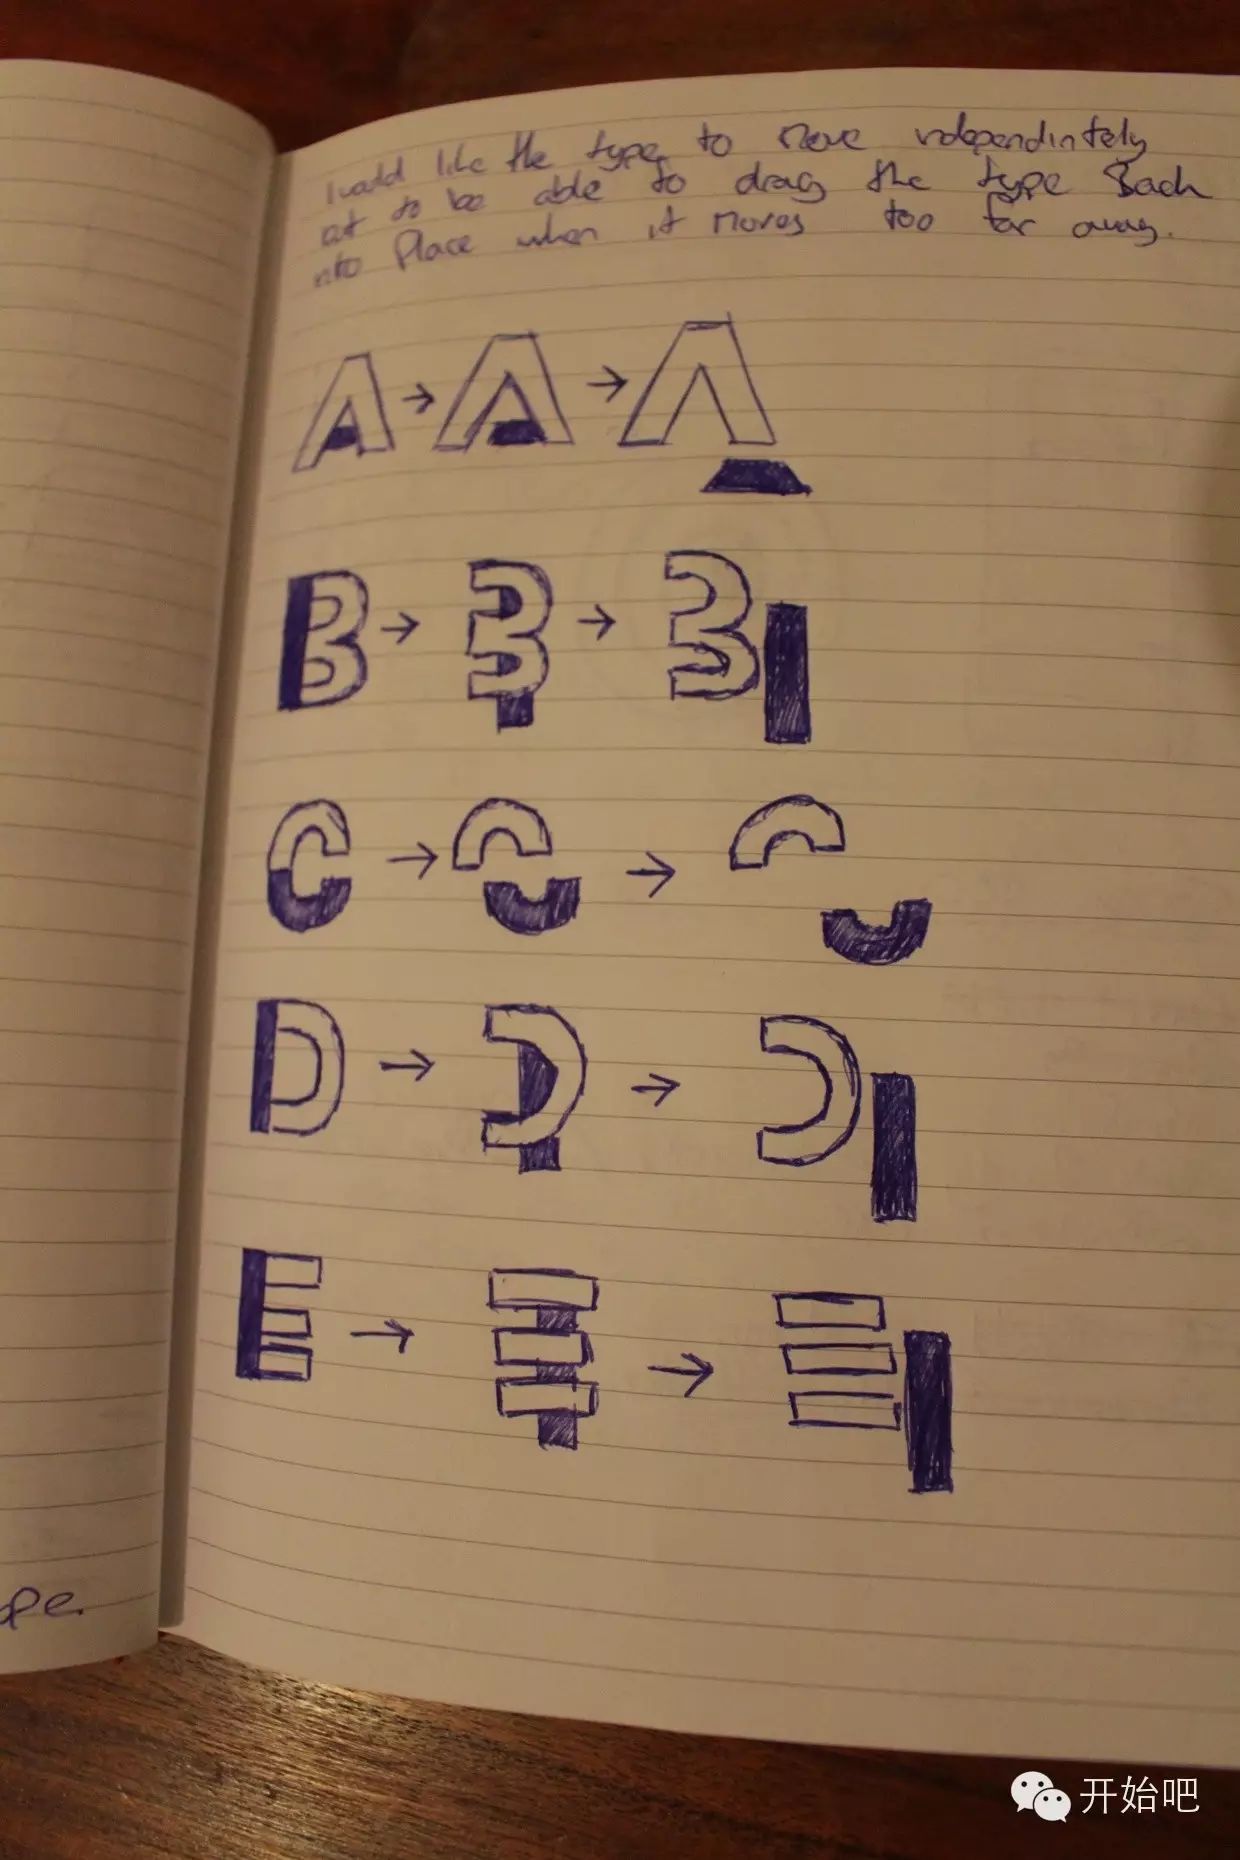 I would like the type to move independintely
at to be able to drag the type back
into Place when it moves too far away.
A → A → A
B → B → B
C → C → C
D → D → D
E → E → E
ope.
开始吧